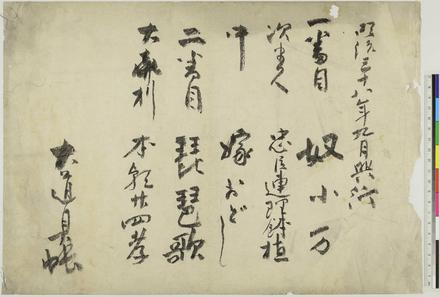 明治三十八年九月興行
一番目　奴の小万
次幕　忠臣連理鉢植
中　嫁おどし
二番目　琵琶歌
大喜利　本朝廿四孝
大道具帳